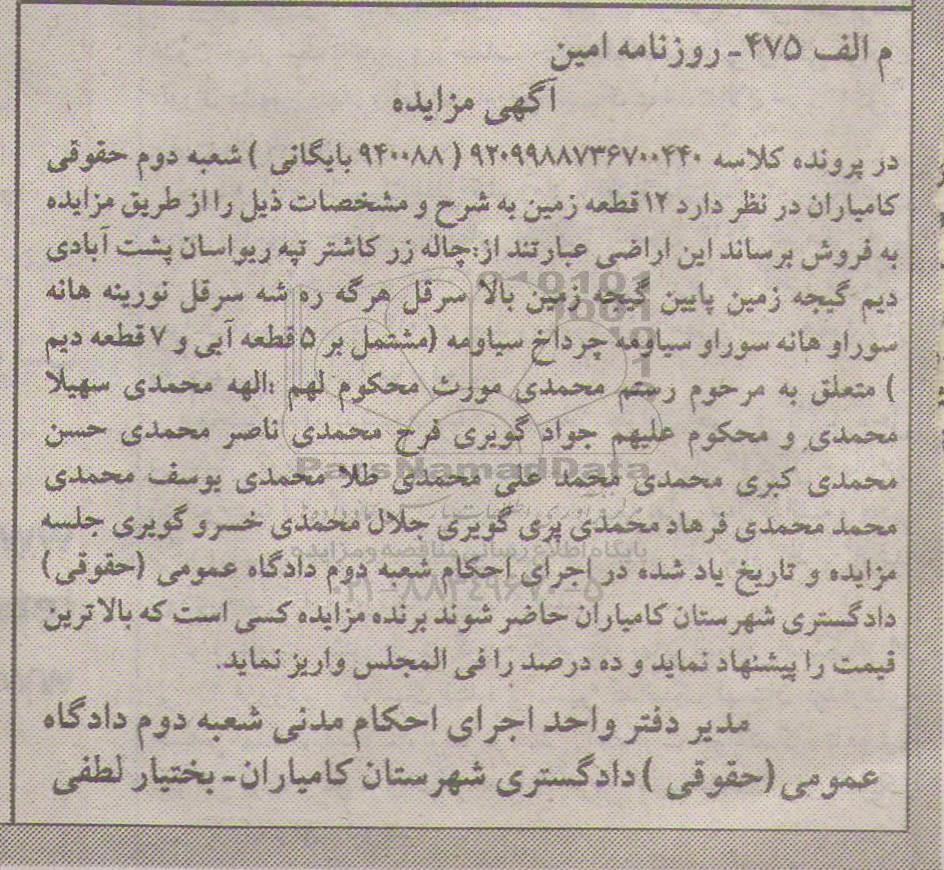 م الف ۴۷۵ـ روزنامه امین
آگهی مزایده
در پرونده کلاسه ۹۲۰۹۹۸۸۷۳۶۷۰۰۴۴۰ ( ۹۴۰۰۸۸ بایگانی ) شعبه دوم حقوقی
کامیاران در نظر دارد ۱۲ قطعه زمین به شرح و مشخصات ذیل را از طریق مزایده
به فروش برساند این اراضی عبارتند از:چاله زر کاشتر تپه ریواسان پشت آبادی
دیم گیجه زمین پایین گیجه زمین بالا سرقل هرگه ره شه سرقل نورینه هانه
سوراو هانه سوراو سیاومه چرداخ سیاومه (مشتمل بر ۵ قطعه آبی و ۷ قطعه دیم
) متعلق به مرحوم رستم محمدی مورث محکوم لهم :الهه محمدی سهیلا
محمدی و محکوم علیهم جواد گویری فرح محمدی ناصر محمدی حسن
محمدی کبری محمدی محمد علی محمدی طلا محمدی یوسف محمدی
محمد محمدی فرهاد محمدی پری گویری جلال محمدی خسرو گویری جلسه
مزایده و تاریخ یاد شده در اجرای احکام شعبه دوم دادگاه عمومی (حقوقی)
دادگستری شهرستان کامیاران حاضر شوند برنده مزایده کسی است که بالاترین
قیمت را پیشنهاد نماید و ده درصد را فی المجلس واریز نماید.
مدیر دفتر واحد اجرای احکام مدنی شعبه دوم دادگاه
عمومی (حقوقی ) دادگستری شهرستان کامیاران ـ بختیار لطفی
ParsNamadData
پایگاه اطلاع رسانی مناقصه و مزایده
۰۲۱-۸۸۳۴۹۶۷۰-۵